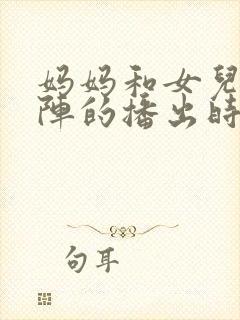 妈妈和女兒
陣的播出時
句耳